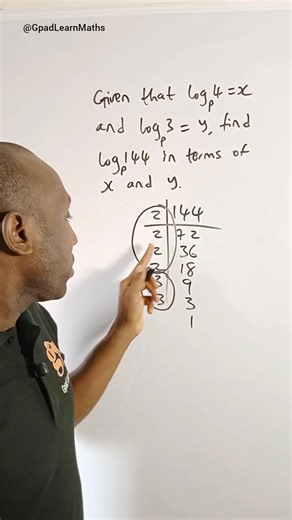 @GpadLearnMaths
Given that logₚ4 = x
and logₚ3 = y, find
logₚ144 in terms of
x and y.
2 144
2 72
2 36
2 18
3 9
3 3
1